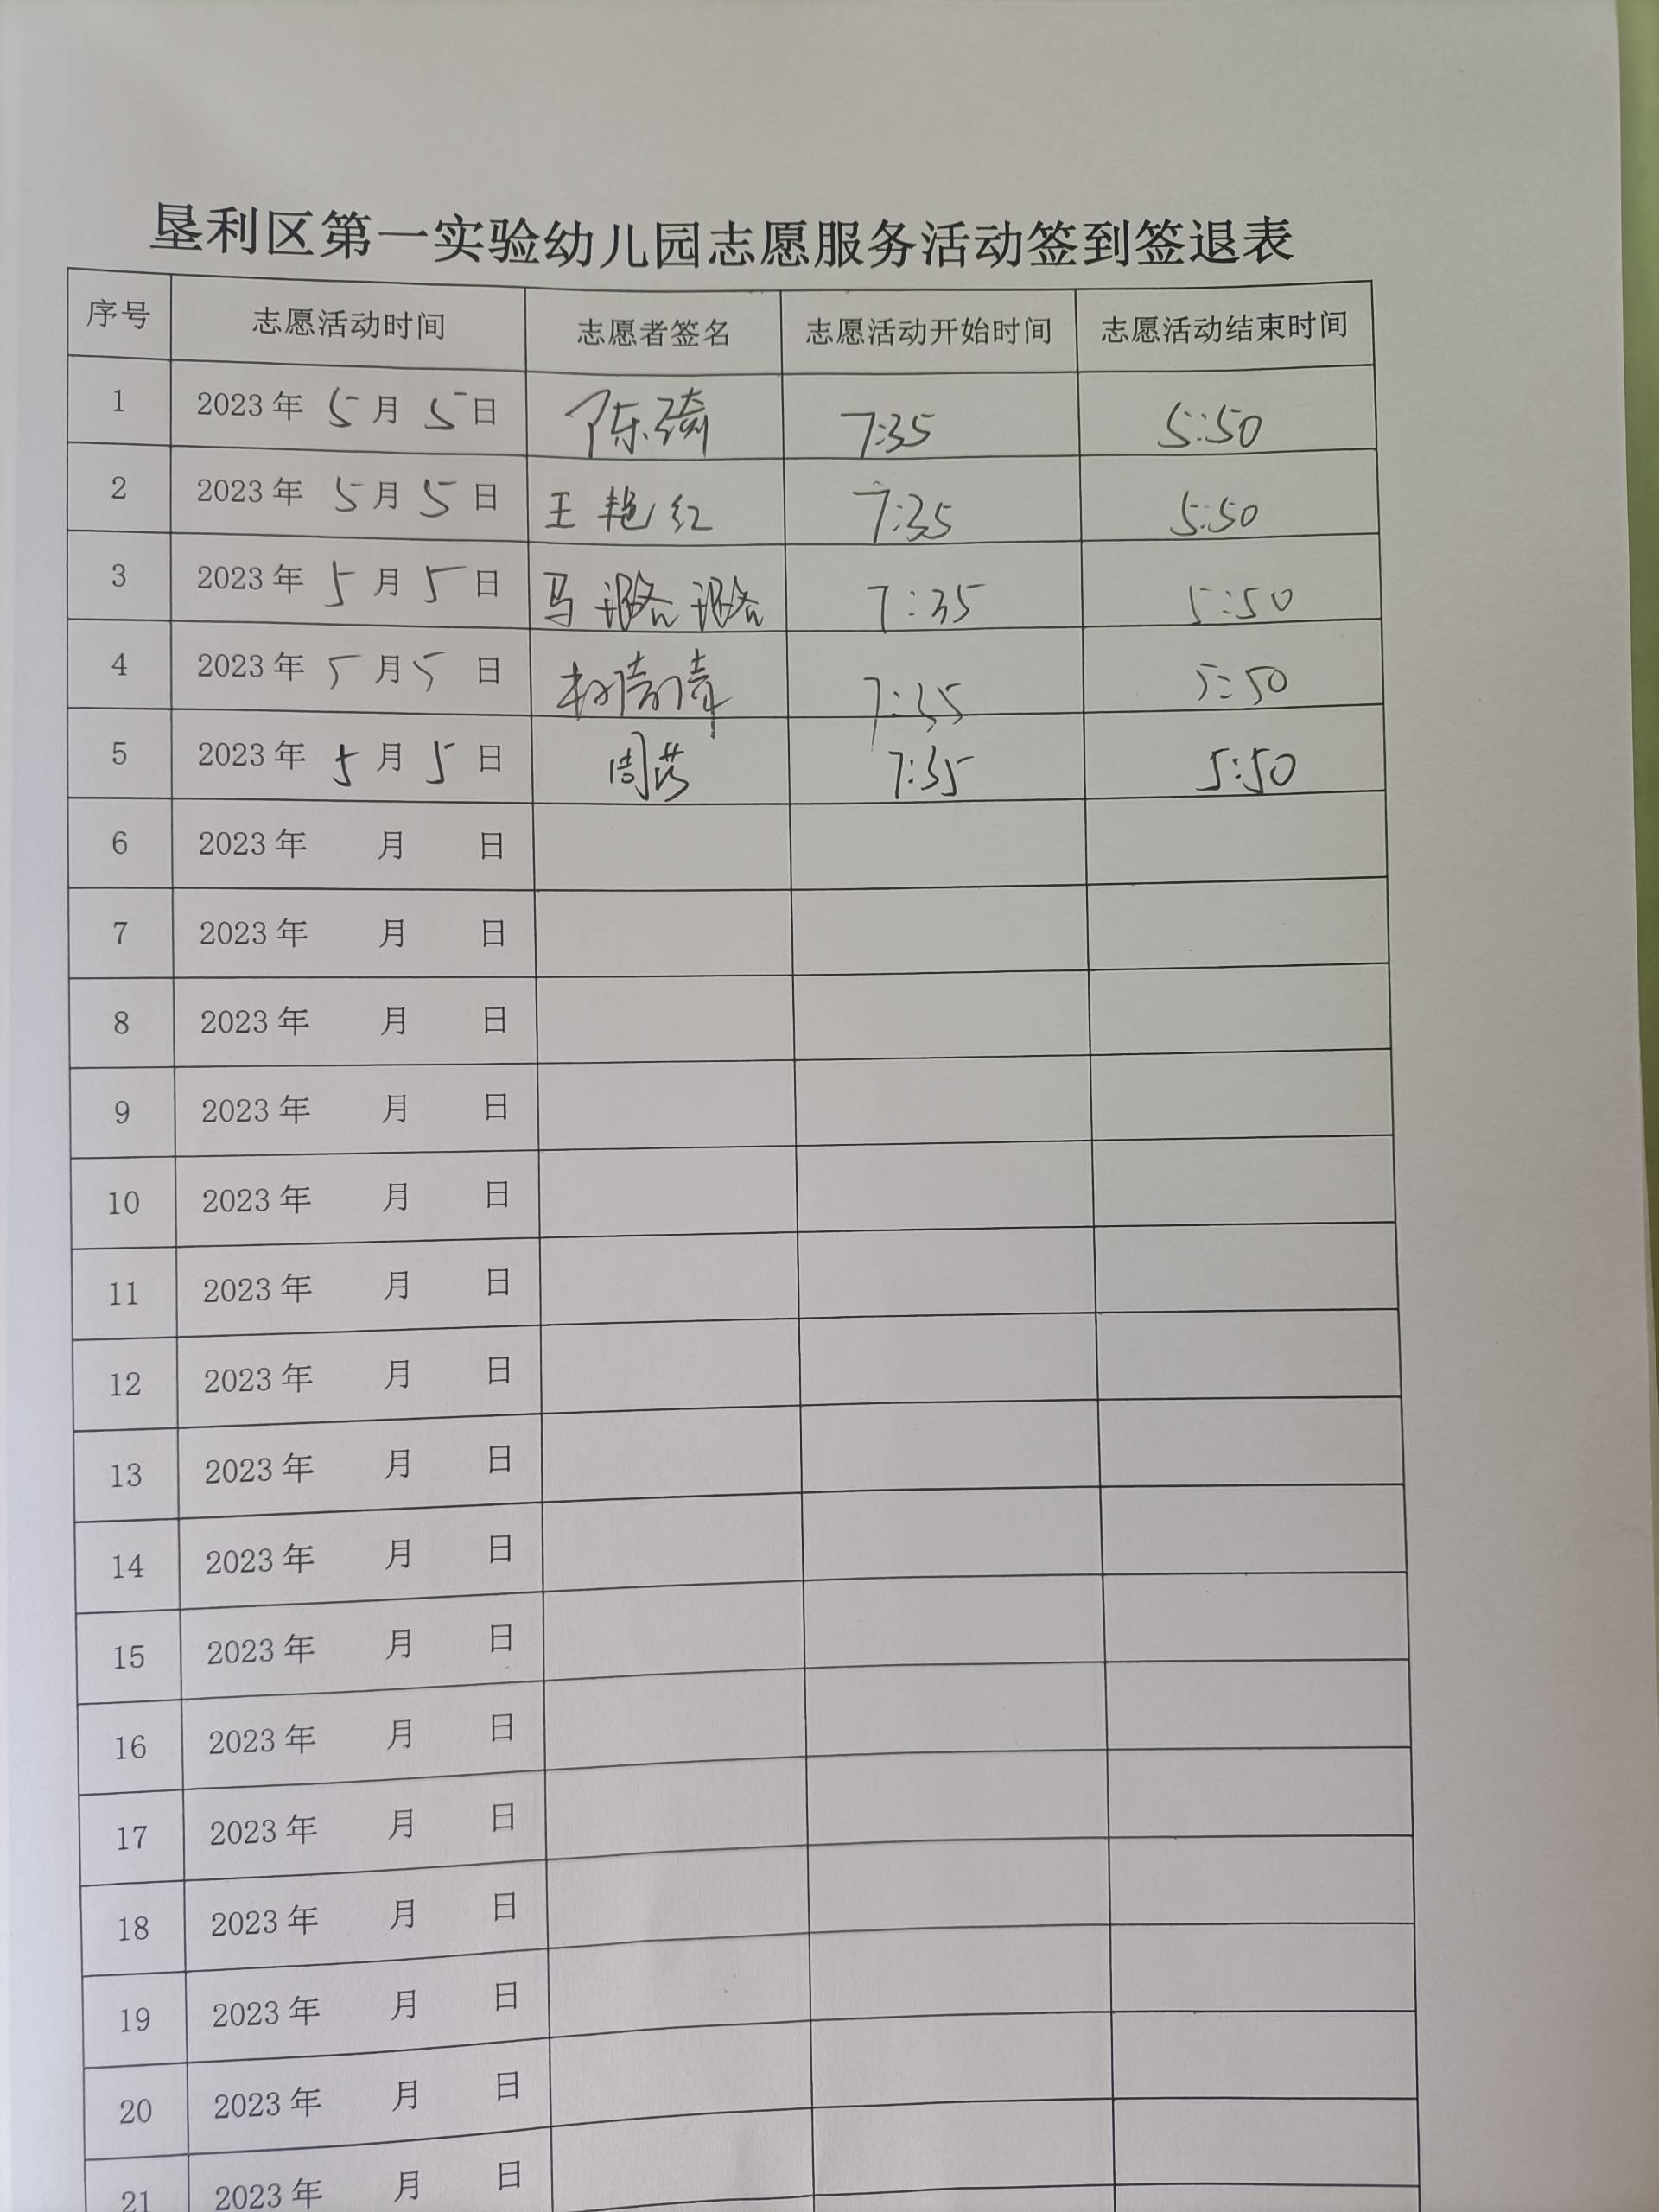 垦利区第一实验幼儿园志愿服务活动签到签退表
序号 志愿活动时间 志愿者签名 志愿活动开始时间 志愿活动结束时间
1 2023年 5月 5日 陈琦 7:35 5:50
2 2023年 5月 5日 王艳红 7:35 5:50
3 2023年 5月 5日 马璐璐 7:35 5:50
4 2023年 5月 5日 7:35 5:50
5 2023年 5月 5日 周 7:35 5:50
6 2023年 月 日
7 2023年 月 日
8 2023年 月 日
9 2023年 月 日
10 2023年 月 日
11 2023年 月 日
12 2023年 月 日
13 2023年 月 日
14 2023年 月 日
15 2023年 月 日
16 2023年 月 日
17 2023年 月 日
18 2023年 月 日
19 2023年 月 日
20 2023年 月 日
21 2023年 月 日